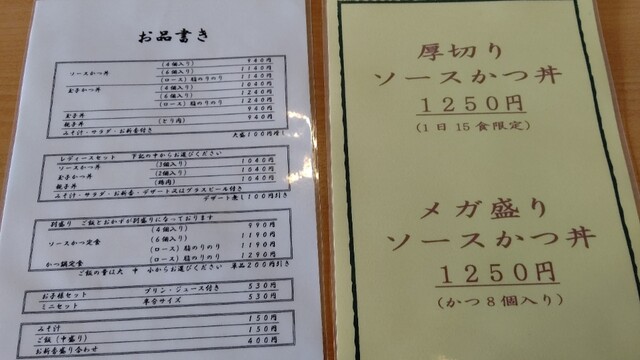 お品書き
ソースかつ丼 (4個入り) 940円
(6個入り) 1140円
(ロース)脂のりのり 1140円
玉子かつ丼 (4個入り) 1040円
(6個入り) 1240円
(ロース)脂のりのり 1240円
玉子丼 940円
親子丼 (とり肉) 940円
みそ汁・サラダ・お新香付き 大盛100円増し
レディースセット 下記の中からお選びください
ソースかつ丼 (3個入り) 1040円
玉子かつ丼 (2個入り) 1040円
親子丼 (鶏肉) 1040円
みそ汁・サラダ・お新香・デザート又はグラスビール付き
デザート無し100円引き
別盛り ご飯とおかずが別盛りになっております
ソースかつ定食 (4個入り) 990円
(6個入り) 1190円
(ロース)脂のりのり 1190円
かつ鍋定食 (ロース)脂のりのり 1290円
ご飯の量は大 中 小からお選びください 単品200円引き
お子様セット プリン・ジュース付き 530円
ミニセット 半分サイズ 530円
みそ汁 150円
ご飯(中盛り) 150円
お新香盛り合わせ 400円
厚切り
ソースかつ丼
1250円
(1日15食限定)
メガ盛り
ソースかつ丼
1250円
(かつ8個入り)